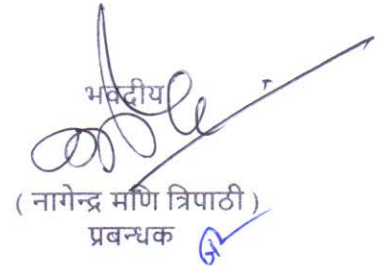 भवदीय
( नागेन्द्र मणि त्रिपाठी )
प्रबन्धक